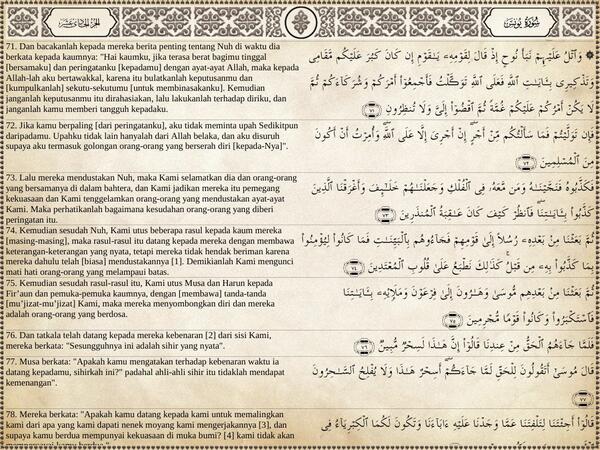 الجزء الحادي عشر
سورة يونس
71. Dan bacakanlah kepada mereka berita penting tentang Nuh di waktu dia
berkata kepada kaumnya: "Hai kaumku, jika terasa berat bagimu tinggal
[bersamaku] dan peringatanku [kepadamu] dengan ayat-ayat Allah, maka kepada
Allah-lah aku bertawakkal, karena itu bulatkanlah keputusanmu dan
[kumpulkanlah] sekutu-sekutumu [untuk membinasakanku]. Kemudian
janganlah keputusanmu itu dirahasiakan, lalu lakukanlah terhadap diriku, dan
janganlah kamu memberi tangguh kepadaku.
۞ وَٱتْلُ عَلَيْهِمْ نَبَأَ نُوحٍ إِذْ قَالَ لِقَوْمِهِۦ يَـٰقَوْمِ إِن كَانَ كَبُرَ عَلَيْكُم مَّقَامِى
وَتَذْكِيرِى بِـَٔايَـٰتِ ٱللَّهِ فَعَلَى ٱللَّهِ تَوَكَّلْتُ فَأَجْمِعُوٓا۟ أَمْرَكُمْ وَشُرَكَآءَكُمْ ثُمَّ
لَا يَكُنْ أَمْرُكُمْ عَلَيْكُمْ غُمَّةً ثُمَّ ٱقْضُوٓا۟ إِلَىَّ وَلَا تُنظِرُونِ ٧١
72. Jika kamu berpaling [dari peringatanku], aku tidak meminta upah Sedikitpun
daripadamu. Upahku tidak lain hanyalah dari Allah belaka, dan aku disuruh
supaya aku termasuk golongan orang-orang yang berserah diri [kepada-Nya]".
فَإِن تَوَلَّيْتُمْ فَمَا سَأَلْتُكُم مِّنْ أَجْرٍ ۖ إِنْ أَجْرِىَ إِلَّا عَلَى ٱللَّهِ ۖ وَأُمِرْتُ أَنْ أَكُونَ
مِنَ ٱلْمُسْلِمِينَ ٧٢
73. Lalu mereka mendustakan Nuh, maka Kami selamatkan dia dan orang-orang
yang bersamanya di dalam bahtera, dan Kami jadikan mereka itu pemegang
kekuasaan dan Kami tenggelamkan orang-orang yang mendustakan ayat-ayat
Kami. Maka perhatikanlah bagaimana kesudahan orang-orang yang diberi
peringatan itu.
فَكَذَّبُوهُ فَنَجَّيْنَـٰهُ وَمَن مَّعَهُۥ فِى ٱلْفُلْكِ وَجَعَلْنَـٰهُمْ خَلَـٰٓئِفَ وَأَغْرَقْنَا ٱلَّذِينَ
كَذَّبُوا۟ بِـَٔايَـٰتِنَا ۖ فَٱنظُرْ كَيْفَ كَانَ عَـٰقِبَةُ ٱلْمُنذَرِينَ ٧٣
74. Kemudian sesudah Nuh, Kami utus beberapa rasul kepada kaum mereka
[masing-masing], maka rasul-rasul itu datang kepada mereka dengan membawa
keterangan-keterangan yang nyata, tetapi mereka tidak hendak beriman karena
mereka dahulu telah [biasa] mendustakannya [1]. Demikianlah Kami mengunci
mati hati orang-orang yang melampaui batas.
ثُمَّ بَعَثْنَا مِنۢ بَعْدِهِۦ رُسُلًا إِلَىٰ قَوْمِهِمْ فَجَآءُوهُم بِٱلْبَيِّنَـٰتِ فَمَا كَانُوا۟ لِيُؤْمِنُوا۟
بِمَا كَذَّبُوا۟ بِهِۦ مِن قَبْلُ ۚ كَذَٰلِكَ نَطْبَعُ عَلَىٰ قُلُوبِ ٱلْمُعْتَدِينَ ٧٤
75. Kemudian sesudah rasul-rasul itu, Kami utus Musa dan Harun kepada
Fir'aun dan pemuka-pemuka kaumnya, dengan [membawa] tanda-tanda
[mu'jizat-mu'jizat] Kami, maka mereka menyombongkan diri dan mereka
adalah orang-orang yang berdosa.
ثُمَّ بَعَثْنَا مِنۢ بَعْدِهِم مُّوسَىٰ وَهَـٰرُونَ إِلَىٰ فِرْعَوْنَ وَمَلَإِي۟هِۦ بِـَٔايَـٰتِنَا
فَٱسْتَكْبَرُوا۟ وَكَانُوا۟ قَوْمًا مُّجْرِمِينَ ٧٥
76. Dan tatkala telah datang kepada mereka kebenaran [2] dari sisi Kami,
mereka berkata: "Sesungguhnya ini adalah sihir yang nyata".
فَلَمَّا جَآءَهُمُ ٱلْحَقُّ مِنْ عِندِنَا قَالُوٓا۟ إِنَّ هَـٰذَا لَسِحْرٌ مُّبِينٌ ٧٦
77. Musa berkata: "Apakah kamu mengatakan terhadap kebenaran waktu ia
datang kepadamu, sihirkah ini?" padahal ahli-ahli sihir itu tidaklah mendapat
kemenangan".
قَالَ مُوسَىٰٓ أَتَقُولُونَ لِلْحَقِّ لَمَّا جَآءَكُمْ ۖ أَسِحْرٌ هَـٰذَا وَلَا يُفْلِحُ ٱلسَّـٰحِرُونَ
٧٧
78. Mereka berkata: "Apakah kamu datang kepada kami untuk memalingkan
kami dari apa yang kami dapati nenek moyang kami mengerjakannya [3], dan
supaya kamu berdua mempunyai kekuasaan di muka bumi? [4] kami tidak akan
قَالُوٓا۟ أَجِئْتَنَا لِتَلْفِتَنَا عَمَّا وَجَدْنَا عَلَيْهِ ءَابَآءَنَا وَتَكُونَ لَكُمَا ٱلْكِبْرِيَآءُ فِى